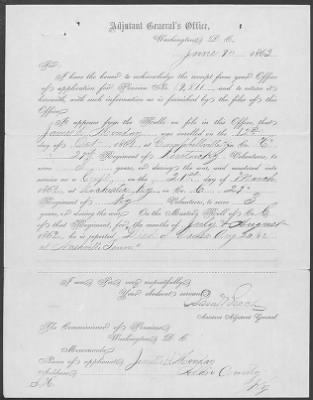 Adjutant General's Office,
Washington, D. C.
June 1863
Sir:
I have the honor to acknowledge the receipt from your Office
of application for Pension No. and to return it
herewith, with such information as is furnished by the files of this
Office.
It appears from the Rolls on file in this Office, that
James was enrolled on the 12th
day of Oct 1861 at Campbellsville in Co. C
27th Regiment of Kentucky Volunteers, to serve
3 years, or during the war, and mustered into
service as a Corpl on the 21st day of March
1862 at Rochester Ky in Co. C 27th
Regiment of Ky Volunteers, to serve 3
years, or during the war. On the Muster Roll of Co. C
of that Regiment, for the months of July & August
1862 he is reported Died
at Nashville Tenn
I am, Sir, very respectfully,
Your obedient servant,
Assistant Adjutant General.
The Commissioner of Pensions
Washington, D. C.
Memoranda
Name of applicant
Address County
Ky